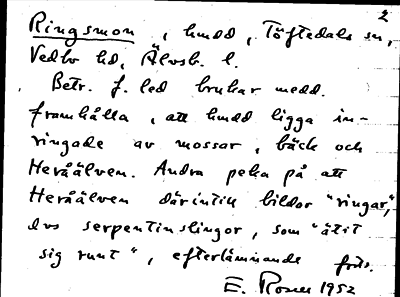 2
Ringsmon, hmdd, Töftedals sn,
Vedbo hd, Älvsb. l.
Betr. f. led brukar medd.
framhålla, att hmdd ligga in-
ringade av mossar, bäck och
Heråälven. Andra peka på att
Heråälven därintill bildar "ringar",
dvs serpentinslingor, som "ätit
sig runt", efterlämnande forts.
E. Rosen 1952